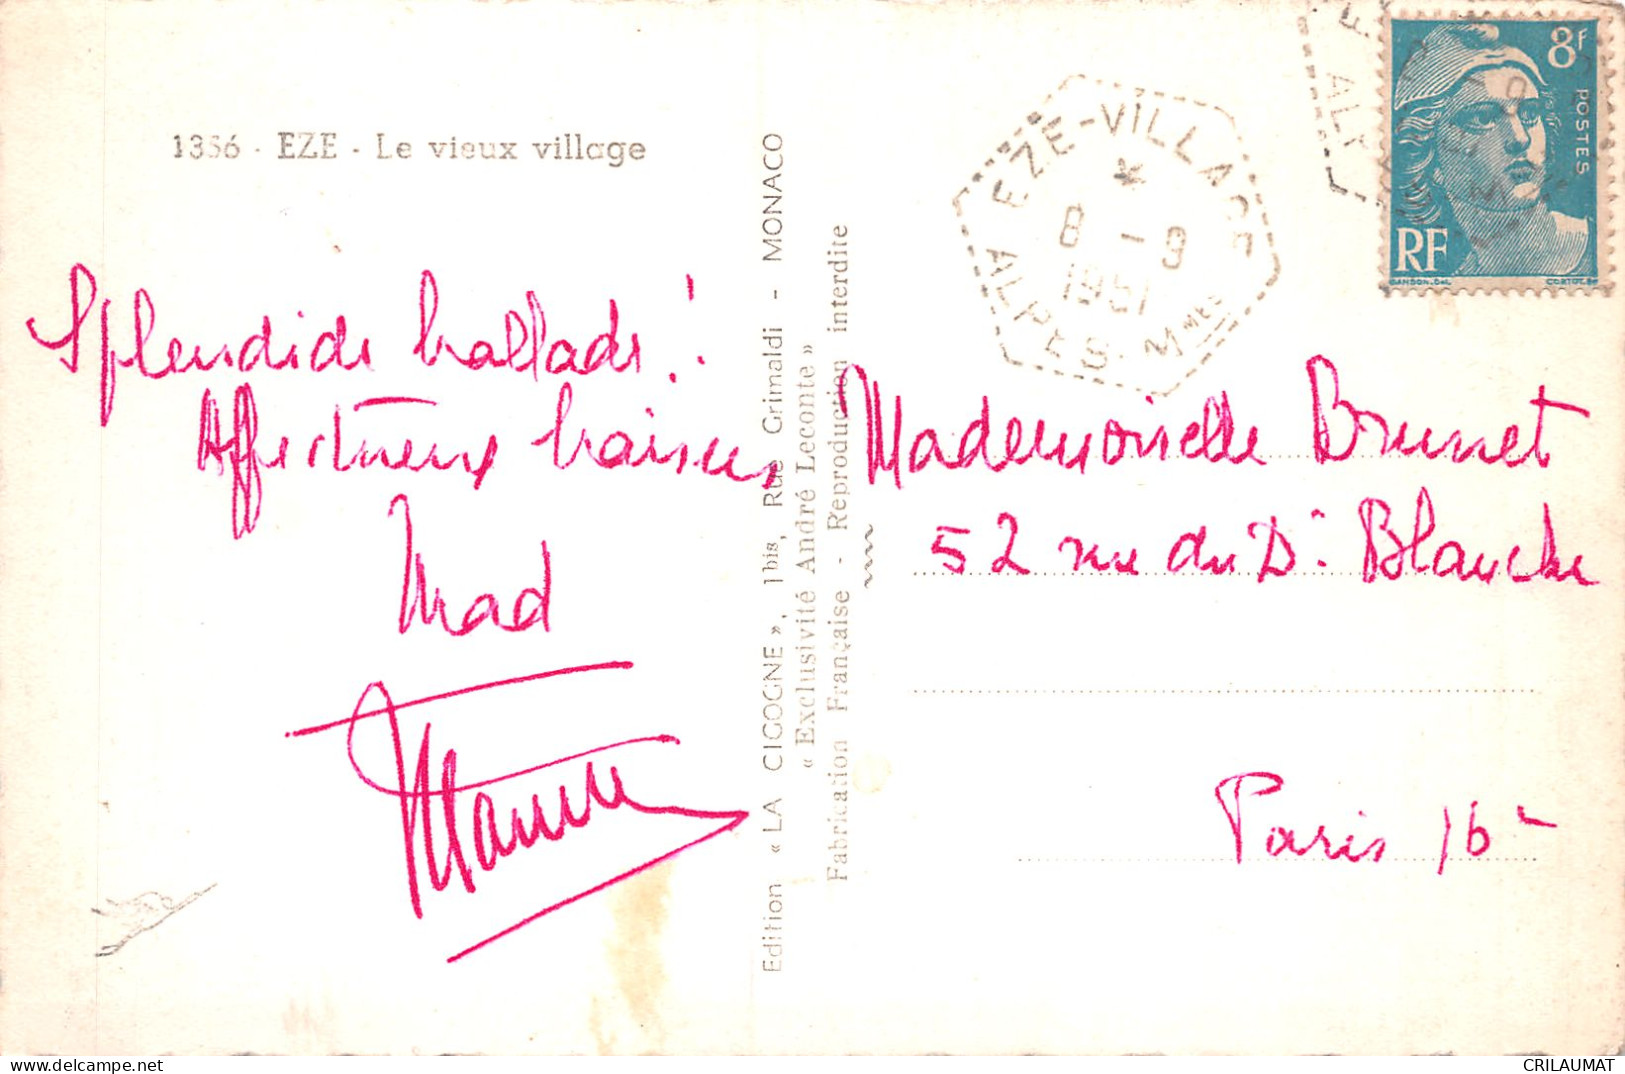 1356 - EZE - Le vieux village
Splendide ballade !
Affectueux baisers
Mad
Edition « LA CIGOGNE », 1bis, Rue Grimaldi - MONACO
« Exclusivité André Leconte »
Fabrication Française - Reproduction interdite
EZE-VILLAGE
8 - 9
1951
ALPES-Mmes
8F
POSTES
RF
GANDON.DEL
Mademoiselle Brunet
52 rue du Dr Blanche
Paris 16e
delcampe.net
CRILAUMAT